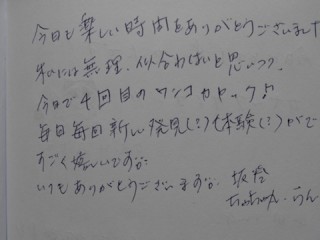 今日も楽しい時間をありがとうございました
私には無理、似合わないと思いつつ、
今日で4回目のワンコカヤック♪
毎日毎回新しい発見(?)体験(?)がで
すごく嬉しいです。
いつもありがとうございます。
ちゃちゃん、らん